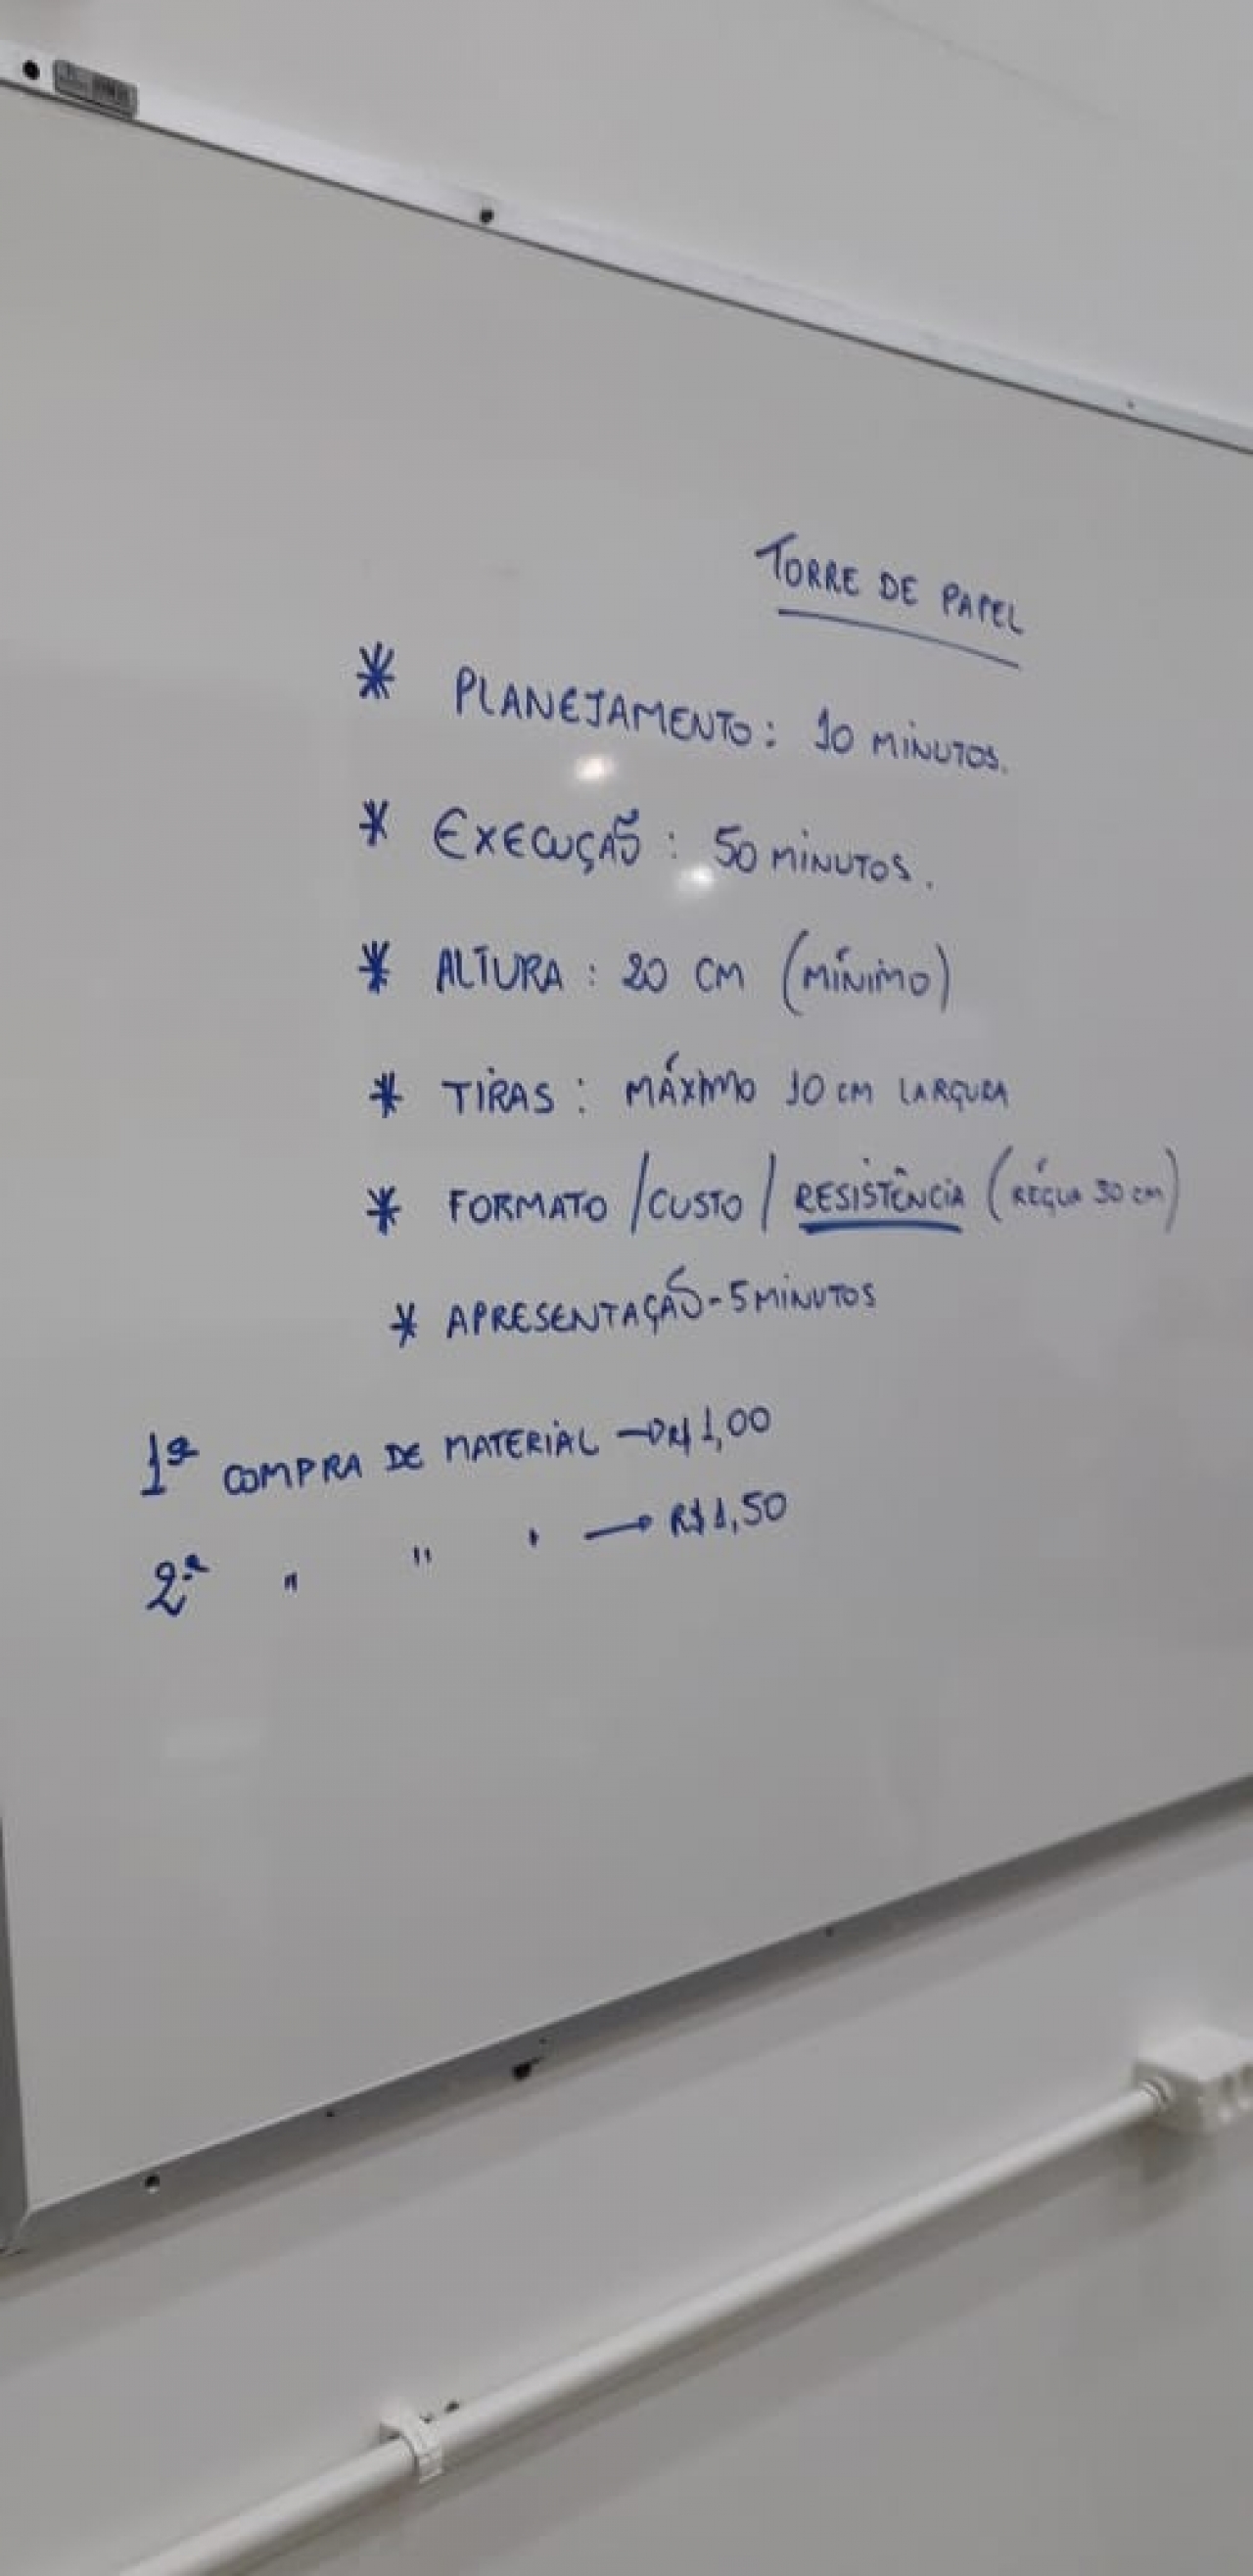 TORRE DE PAPEL
* PLANEJAMENTO: 10 MINUTOS.
* EXECUÇÃO: 50 MINUTOS.
* ALTURA: 20 CM (MÍNIMO)
* TIRAS: MÁXIMO 10 CM LARGURA
* FORMATO / CUSTO / RESISTÊNCIA (RÉGUA 30 cm)
* APRESENTAÇÃO - 5 MINUTOS
1ª COMPRA DE MATERIAL → R$ 1,00
2ª " " " → R$ 1,50